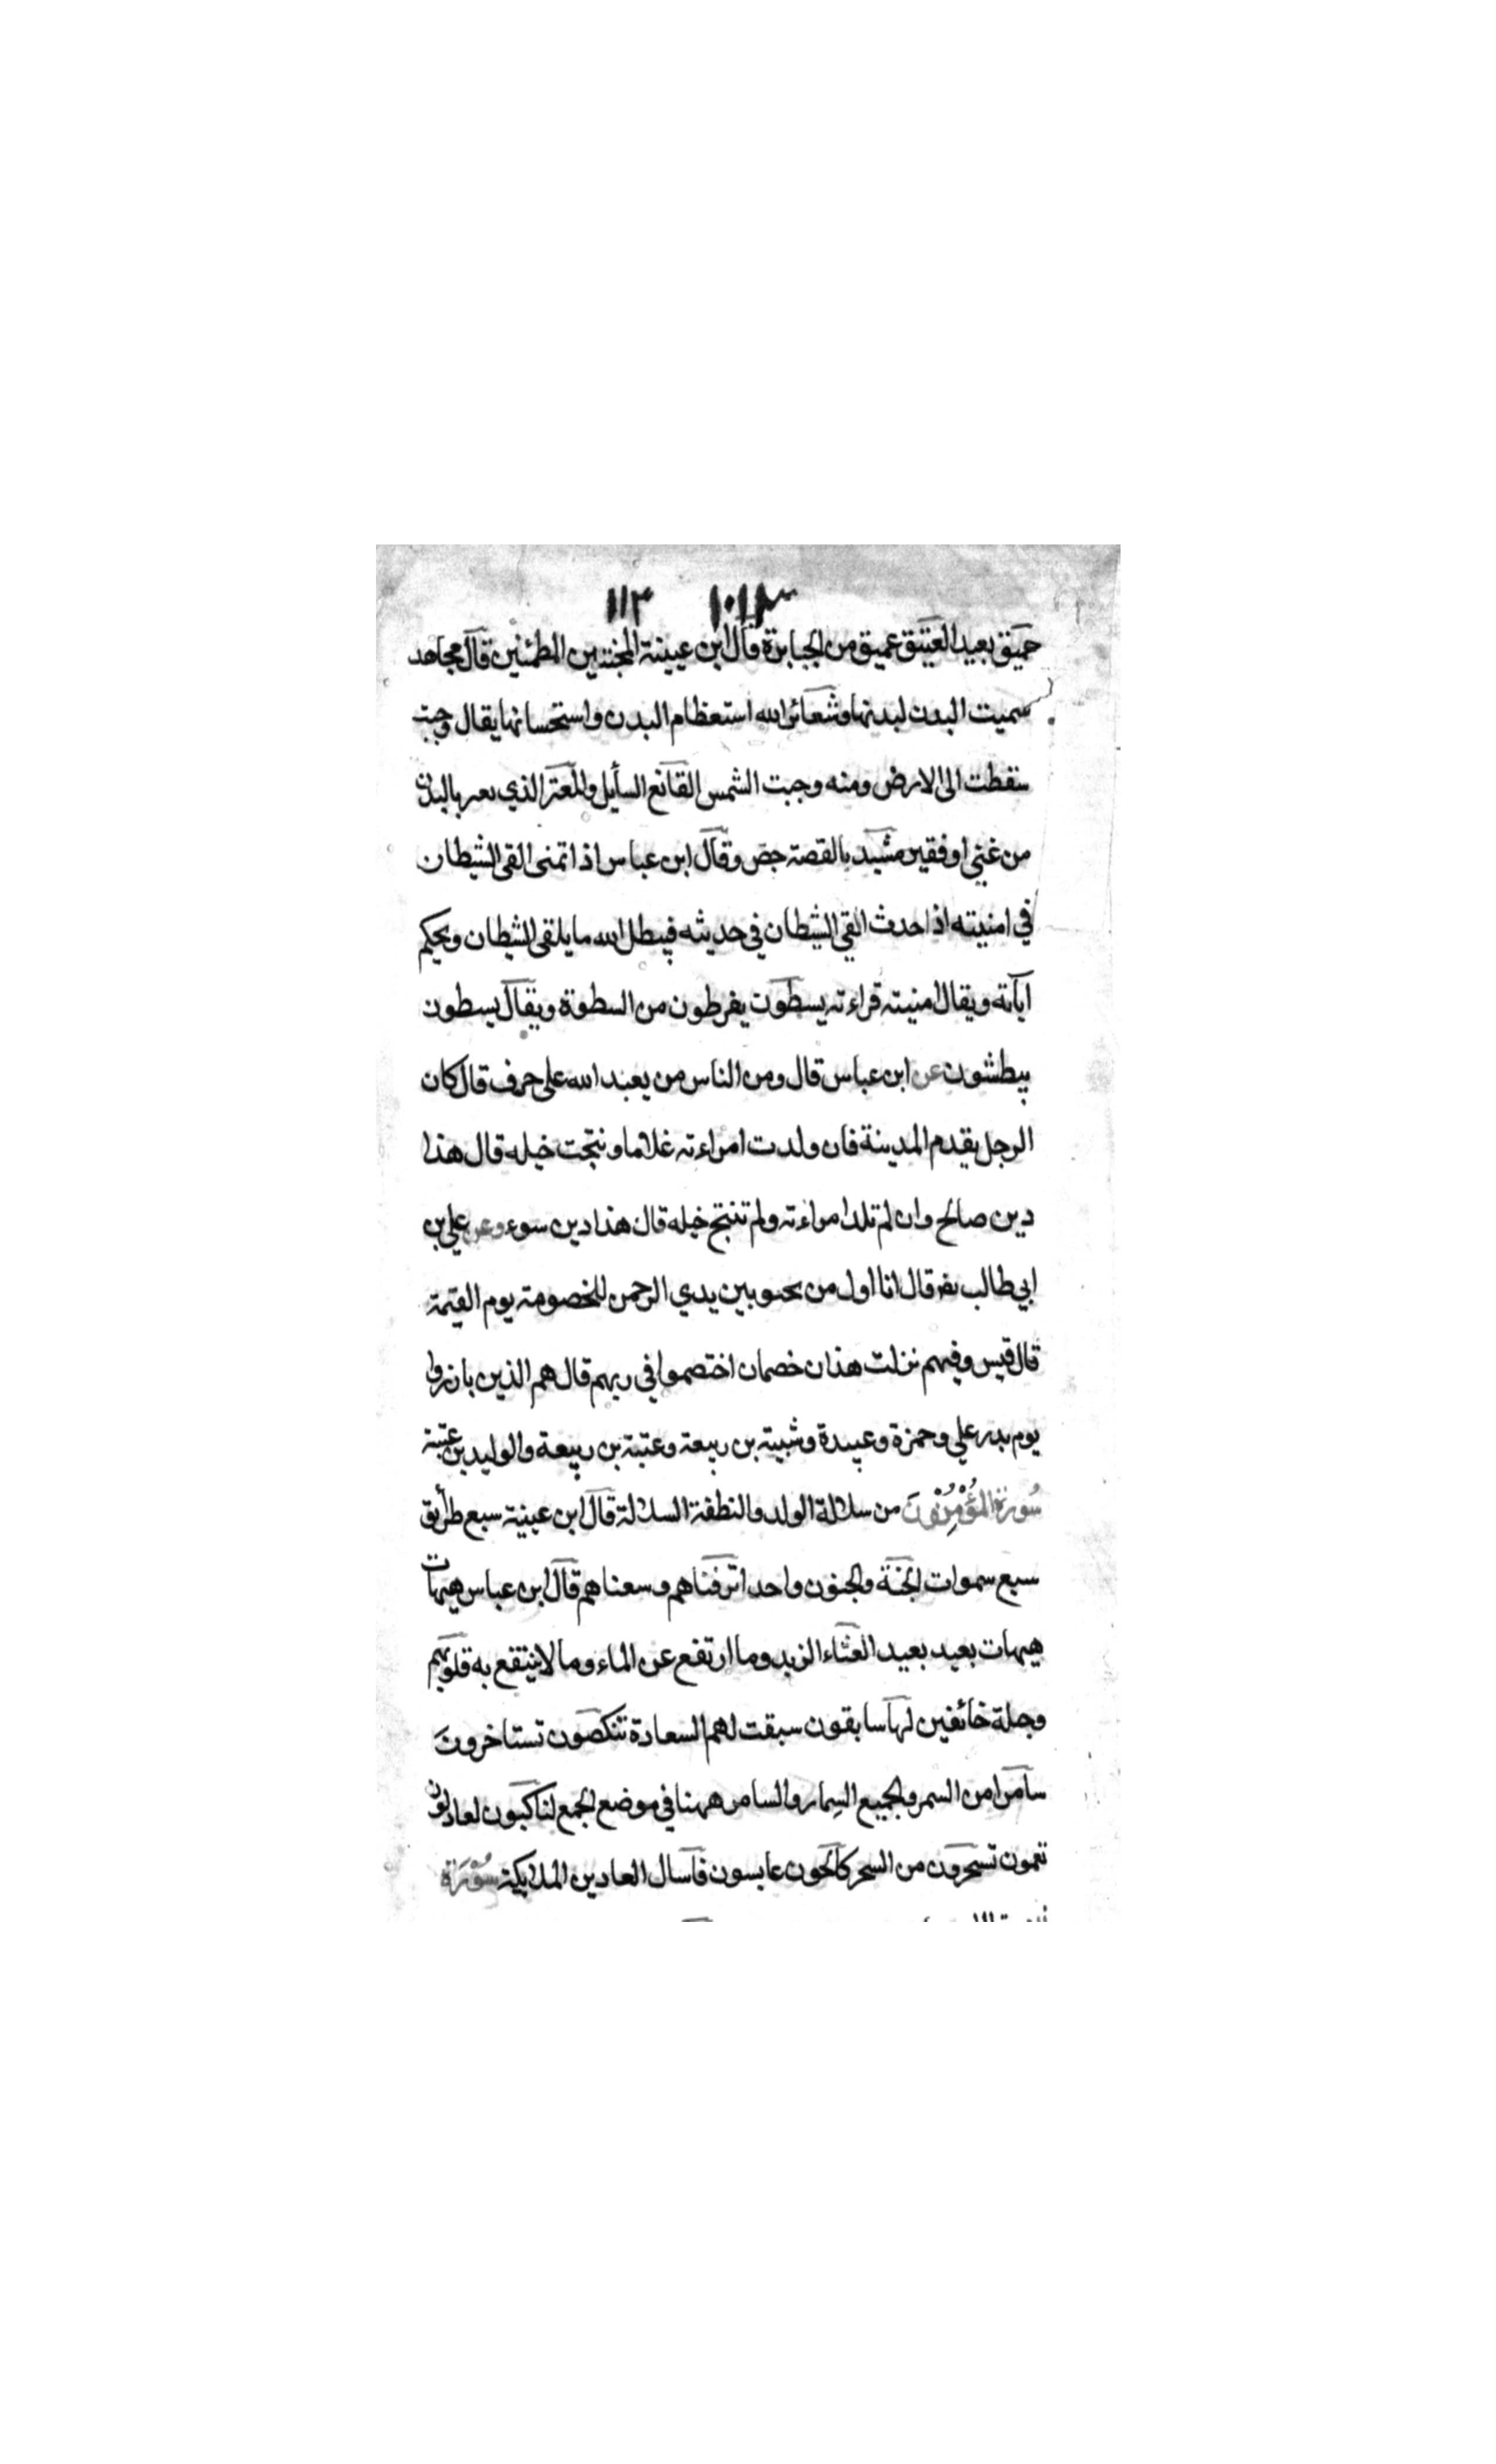 ١٠١٣ ١١٣
عميق بعيد العتيق عميق من الجبابرة قال ابن عيينة المخبتين المطمئنين قال مجاهد
سميت البدن لبدنها وشعائر الله استعظام البدن واستحسانها يقال وجبت
سقطت الى الارض ومنه وجبت الشمس القانع السأيل والمعتر الذي يعر بالبدن
من غني اوفقير مشيد بالقصة جص وقال ابن عباس اذا تمنى القى الشيطان
في امنيته اذا حدث القي الشيطان في حديثه فيبطل الله ما يلقى الشيطان ويحكم
آياته ويقال امنيته قراءته يسطون يفرطون من السطوة ويقال يسطون
يبطشون عن ابن عباس قال ومن الناس من يعبد الله على حرف قال كان
الرجل يقدم المدينة فان ولدت امراءته غلاما ونتجت خيله قال هذا
دين صالح وان لم تلد امراءته ولم تنتج خيله قال هذا دين سوء وعن علي بن
ابي طالب رضه قال انا اول من يجثو بين يدي الرحمن للخصومة يوم القيمة
قال قيس وفيهم نزلت هذان خصمان اختصموا في ربهم قال هم الذين بارزوا
يوم بدر علي وحمزة وعبيدة وشيبة بن ربيعة وعتبة بن ربيعة والوليد بن عتبة
سُورة المُؤْمِنُونَ من سلالة الولد والنطفة السلالة قال ابن عيينة سبع طرأيق
سبع سموات الجنة والجنون واحد اترفناهم وسعناهم قال ابن عباس هيهات
هيهات بعيد بعيد الغثاء الزبد وما ارتفع عن الماء وما لا ينتفع به قلوبهم
وجلة خائفين لها سابقون سبقت لهم السعادة تنكصون تستاخرون
سامرا من السمر والجميع السمار والسامر ههنا في موضع الجمع لناكبون لعادلون
تعمون تسحرون من السحر كالحون عابسون فاسال العادين الملايكة سُوْرَة